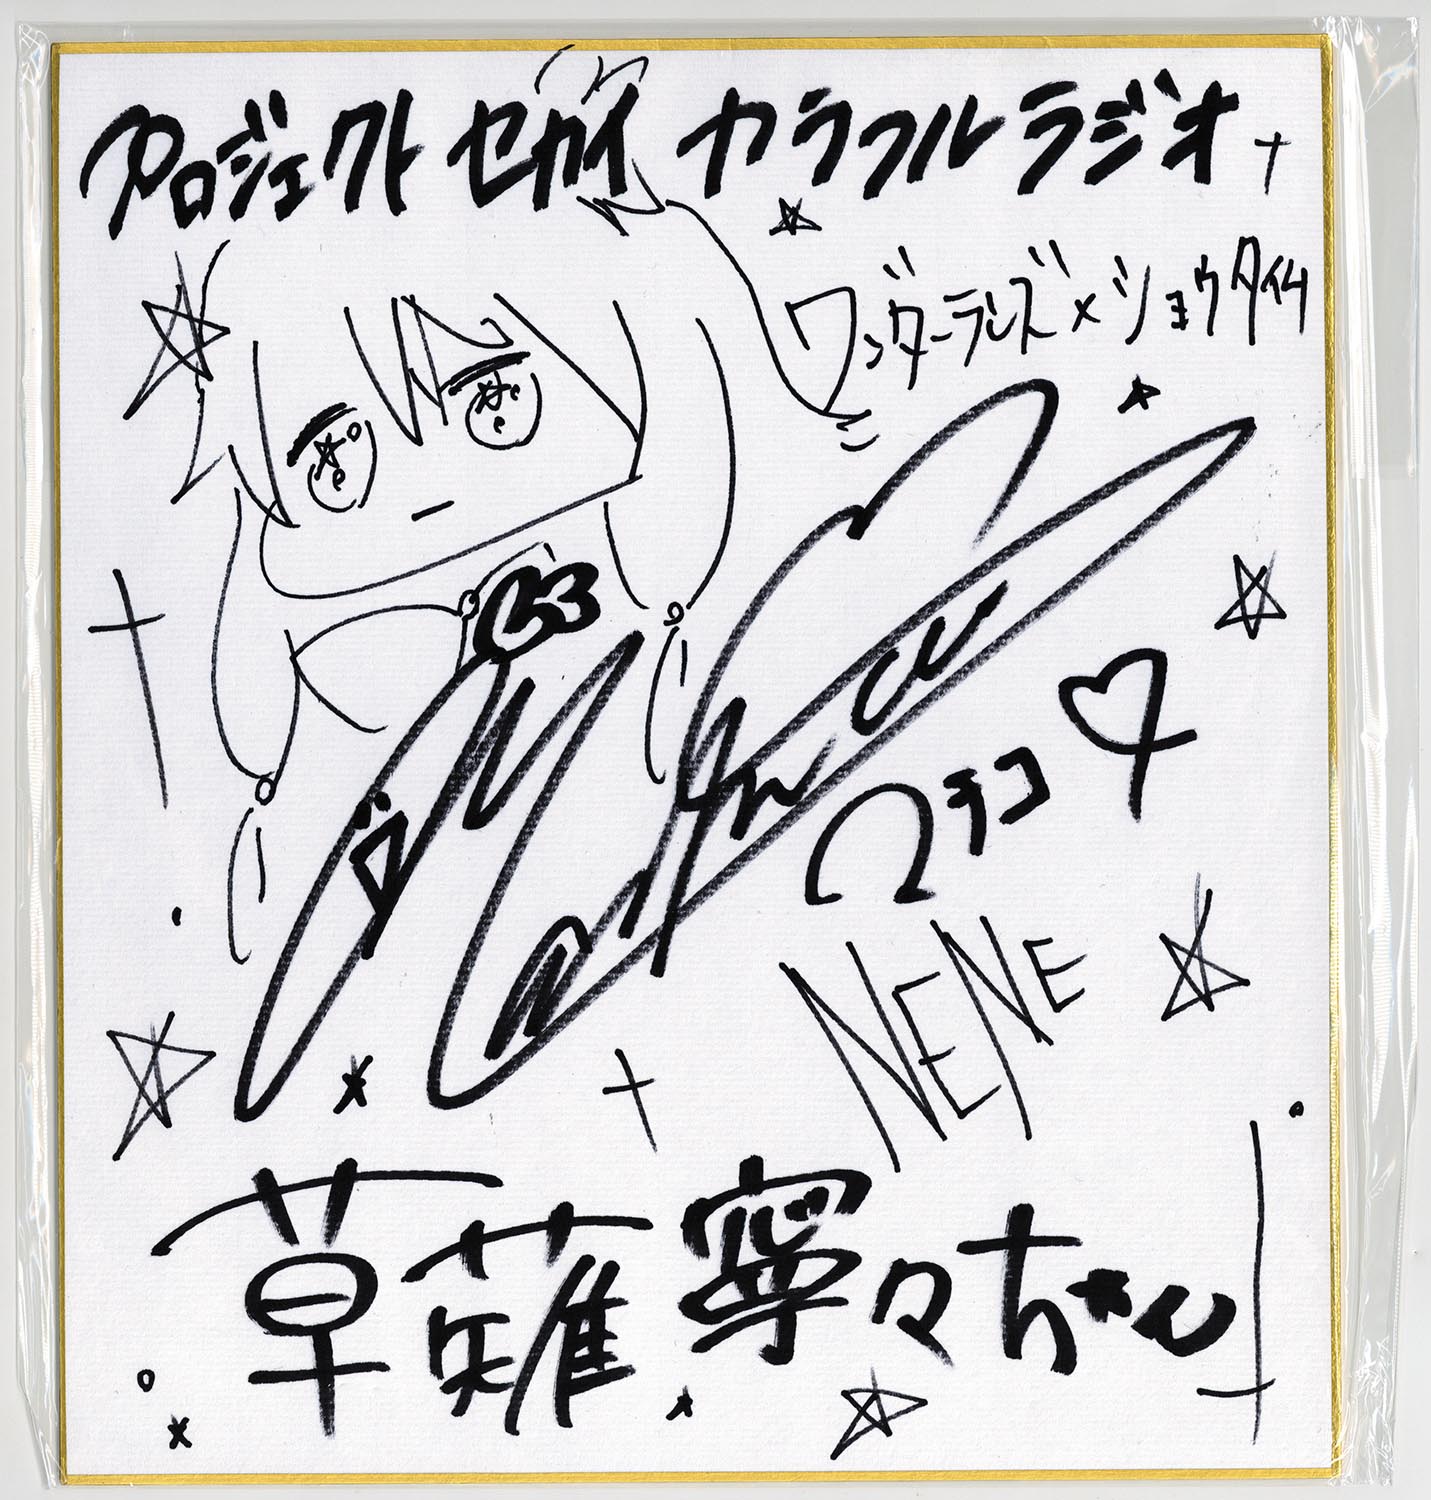 プロジェクトセカイ カラフルラジオ
ワンダーランズ×ショウタイム
NENE
草薙寧々ちゃん